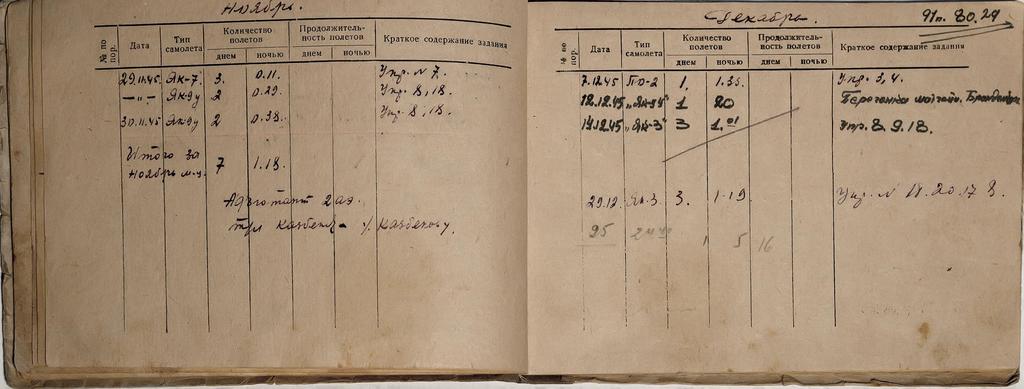 Ноябрь.
№ по пор. Дата Тип самолета Количество полетов днем ночью Продолжительность полетов днем ночью Краткое содержание задания
29.11.45 Як-7. 3. 0.11. Упр. № 7.
—"— Як-9у 2 0.29. Упр. 8, 18.
30.11.45 Як-9у 2 0.38. Упр. 8, 18.
Итого за
ноябрь м-ц 7 1.18.
Адъютант 2 аэ.
Казбеков
Декабрь. 91п. 80.29
№ по пор. Дата Тип самолета Количество полетов днем ночью Продолжительность полетов днем ночью Краткое содержание задания
7.12.45 ПО-2 1. 1.35. Упр. 3, 4.
12.12.45 „Як-9у" 1 20
14.12.45 „Як-3" 3 1.01 Упр. 8. 9. 18.
29.12. Як-3. 3. 1.19 Упр. № 11. 20. 17 8.
25 5 16